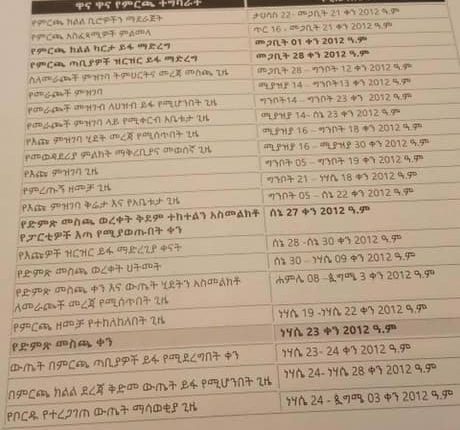 ዋና ዋና የምርጫ ተግባራት
የምርጫ ክልል ቢሮዎችን ማደራጀት ታህሳስ 22- መጋቢት 21 ቀን 2012 ዓ.ም
የምርጫ አስፈጻሚዎች ምልመላ ጥር 16 - መጋቢት 21 ቀን 2012 ዓ.ም
የምርጫ ክልል ካርታ ይፋ ማድረግ መጋቢት 01 ቀን 2012 ዓ.ም
የምርጫ ጣቢያዎች ዝርዝር ይፋ ማድረግ መጋቢት 28 ቀን 2012 ዓ.ም
ስለመራጮች ምዝገባ ትምህርትና መረጃ መስጫ ጊዜ መጋቢት 28 – ግንቦት 12 ቀን 2012 ዓ.ም
የመራጮች ምዝገባ ሚያዝያ 14 – ግንቦት13 ቀን 2012 ዓ.ም
የመራጮች መዝገብ ለህዝብ ይፋ የሚሆንበት ጊዜ ግንቦት14 – ግንቦት 23 ቀን 2012 ዓ.ም
የመራጮች ምዝገባ ላይ የሚቀርብ አቤቱታ ጊዜ ሚያዝያ 14– ሰኔ 23 ቀን 2012 ዓ.ም
የእጩ ምዝገባ ሂደት መረጃ የሚሰጥበት ጊዜ ሚያዝያ 16 – ግንቦት 18 ቀን 2012 ዓ.ም
የመወዳደሪያ ምልክት ማቅረቢያና መወሰኛ ጊዜ ሚያዝያ 16 – ሚያዝያ 30 ቀን 2012 ዓ.ም
የእጩ ምዝገባ ጊዜ ግንቦት 05 – ግንቦት 19 ቀን 2012 ዓ.ም
የምረጡኝ ዘመቻ ጊዜ ግንቦት 21 – ነሃሴ 18 ቀን 2012 ዓ.ም
የእጩ ምዝገባ ቅሬታ እና የአቤቱታ ጊዜ ግንቦት 05 – ሰኔ 22 ቀን 2012 ዓ.ም
የድምጽ መስጫ ወረቀት ቅደም ተከተልን አስመልክቶ ሰኔ 27 ቀን 2012 ዓ.ም
የፓርቲዎች እጣ የሚያወጡበት ቀን
የእጩዎች ዝርዝር ይፋ ማድረጊያ ቀናት ሰኔ 28 -ሰኔ 30 ቀን 2012 ዓ.ም
የድምጽ መስጫ ወረቀት ህትመት ሰኔ 30 – ነሃሴ 09 ቀን 2012 ዓ.ም
የድምፅ መስጫ ቀን እና ውጤት ሂደትን አስመልክቶ ሐምሌ 08 -ጷግሜ 3 ቀን 2012 ዓ.ም
ለመራጮች መረጃ የሚሰጥበት ጊዜ
የምርጫ ዘመቻ የተከለከለበት ጊዜ ነሃሴ 19 -ነሃሴ 22 ቀን 2012 ዓ.ም
የድምጽ መስጫ ቀን ነሃሴ 23 ቀን 2012 ዓ.ም
ውጤት በምርጫ ጣቢያዎች ይፋ የሚደረግበት ቀን ነሃሴ 23– 24 ቀን 2012 ዓ.ም
በምርጫ ክልል ደረጃ ቅድመ ውጤት ይፋ የሚሆንበት ጊዜ ነሃሴ 24- ነሃሴ 28 ቀን 2012 ዓ.ም
የቦርዱ የተረጋገጠ ውጤት ማሳወቂያ ጊዜ ነሃሴ 24 - ጷግሜ 03 ቀን 2012 ዓ.ም